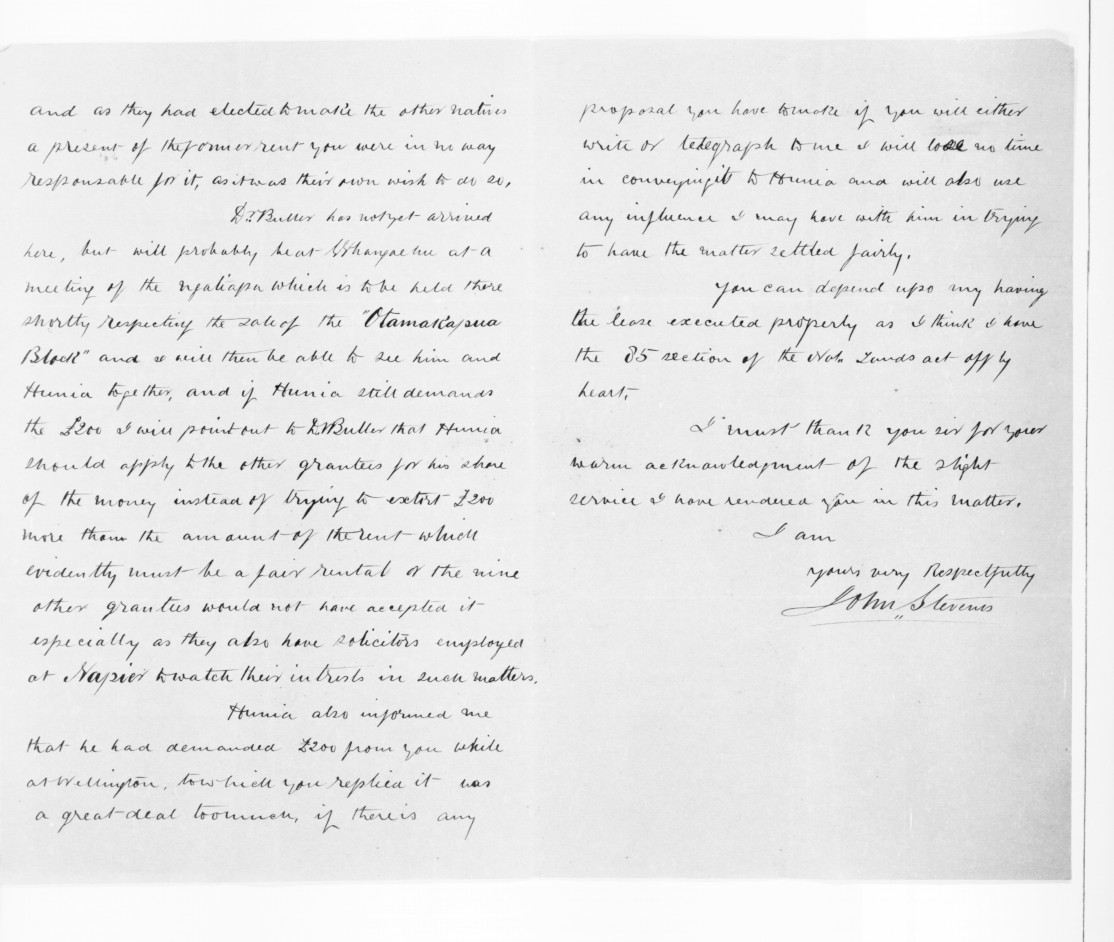 and as they had elected to make the other natives
a present of the former rent you were in no way
responsable for it, as it was their own wish to do so,
Dr. Buller has not yet arrived
here, but will probably be at Whangaehu at a
meeting of the ngatiapa which is to be held there
shortly respecting the sale of the "Otamakapua
Block" and I will then be able to see him and
Hunia together, and if Hunia still demands
the £200 I will point out to Dr Buller that Hunia
should apply to the other grantees for his share
of the money instead of trying to extort £200
more than the amount of the rent which
evidently must be a fair rental or the nine
other grantees would not have accepted it
especially as they also have solicitors employed
at Napier to watch their intrests in such matters.
Hunia also informed me
that he had demanded £200 from you while
at Wellington, to which you replied it was
a great deal too much, if there is any
proposal you have to make if you will either
write or telegraph to me I will lose no time
in conveying it to Hunia and will also use
any influence I may have with him in trying
to have the matter settled fairly.
You can depend upo my having
the lease executed property as I think I have
the 85 section of the Nat. Lands act off by
heart,
I must thank you sir for your
warm acknowledgment of the slight
service I have rendered you in this matter.
I am
yours very Respectfully
John Stevens